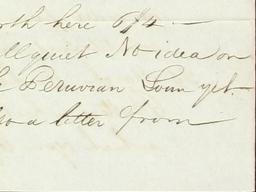 rth here 6/4. —
ll quiet No idea on
e Peruvian Loan yet.
so a letter from